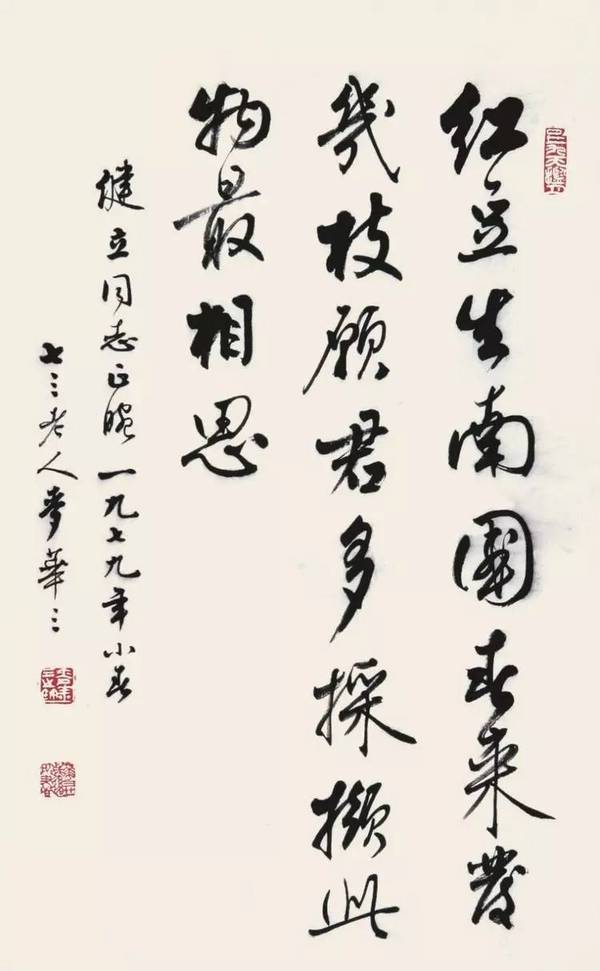 红豆生南國春来發
幾枝願君多採擷此
物最相思
健立同志正腕一九七九年小春
七三老人麥華三